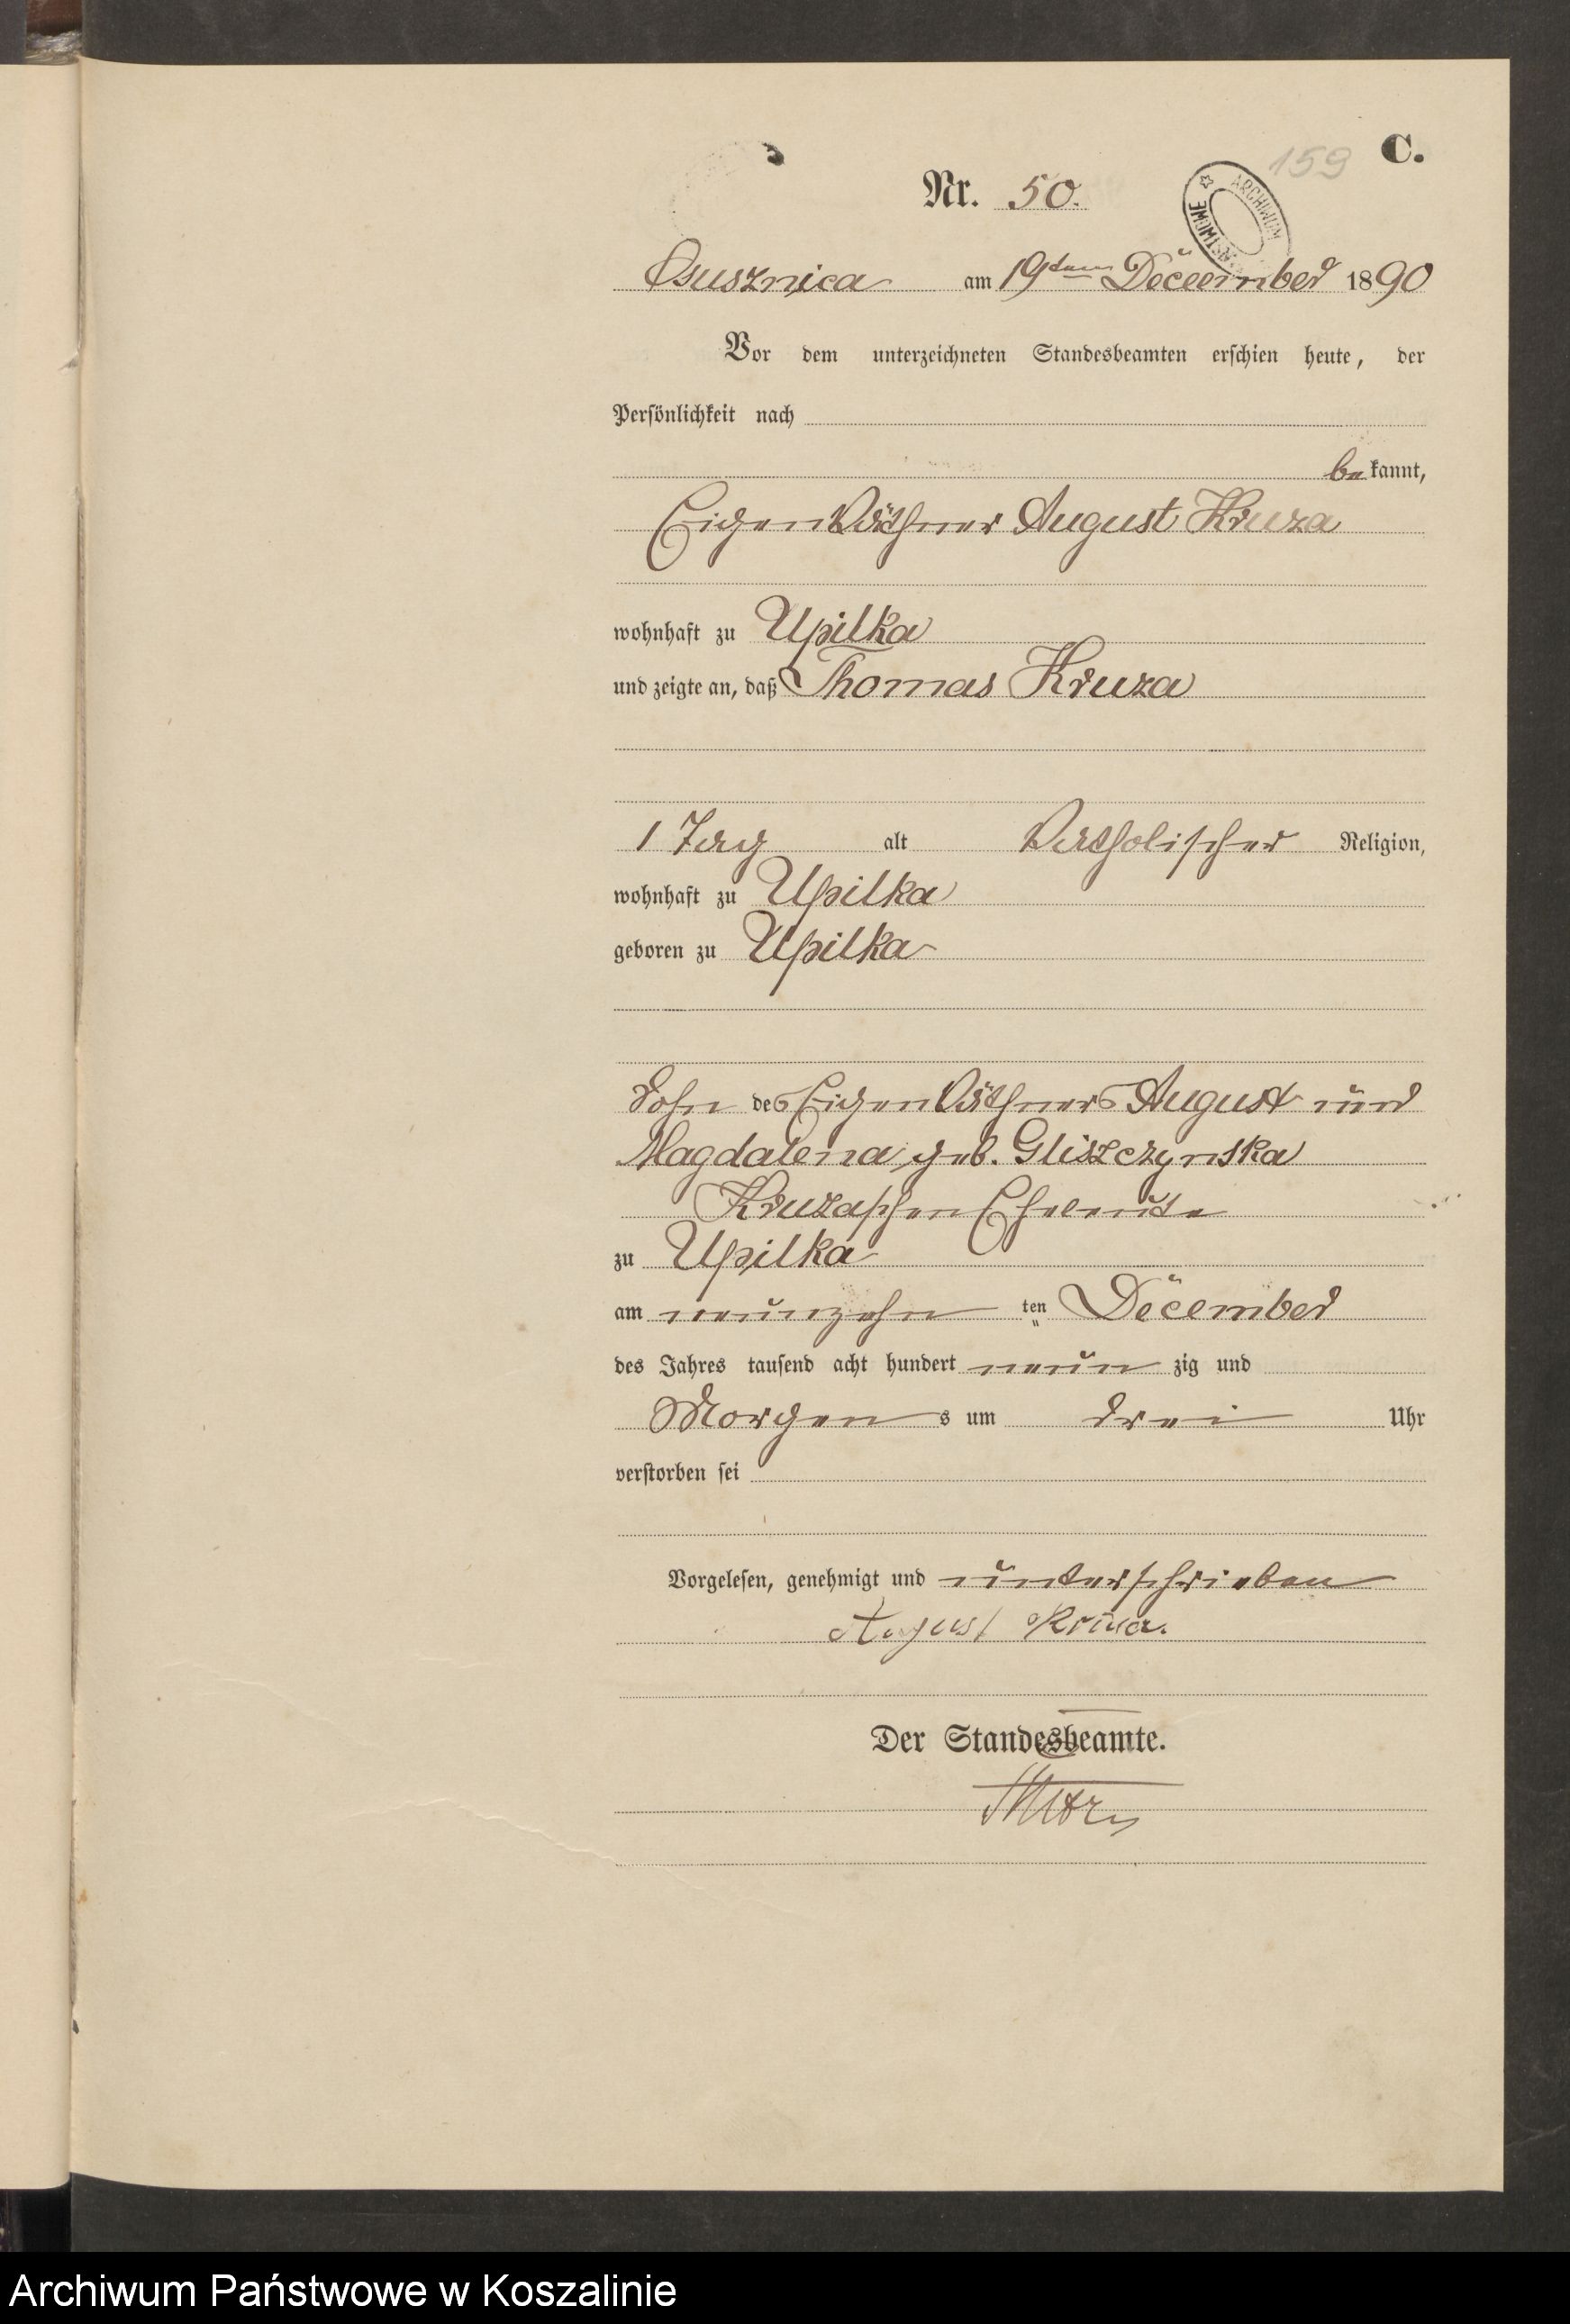 159 C.
Nr. 50.
ARCHIWUM PAŃSTWOWE
Osusznica am 19ten December 1890
Vor dem unterzeichneten Standesbeamten erschien heute, der
Persönlichkeit nach
bekannt,
Eigenkäthner August Kruza
wohnhaft zu Upilka
und zeigte an, daß Thomas Kruza
1 Tag alt Katholischer Religion,
wohnhaft zu Upilka
geboren zu Upilka
Sohn des Eigenkäthners August und
Magdalena geb. Gliszczynska
Kruzaschen Eheleute
zu Upilka
am neunzehn ten December
des Jahres tausend acht hundert neun zig und
Morgens um drei Uhr
verstorben sei
Vorgelesen, genehmigt und unterschrieben
August Kruza.
Der Standesbeamte.
Archiwum Państwowe w Koszalinie